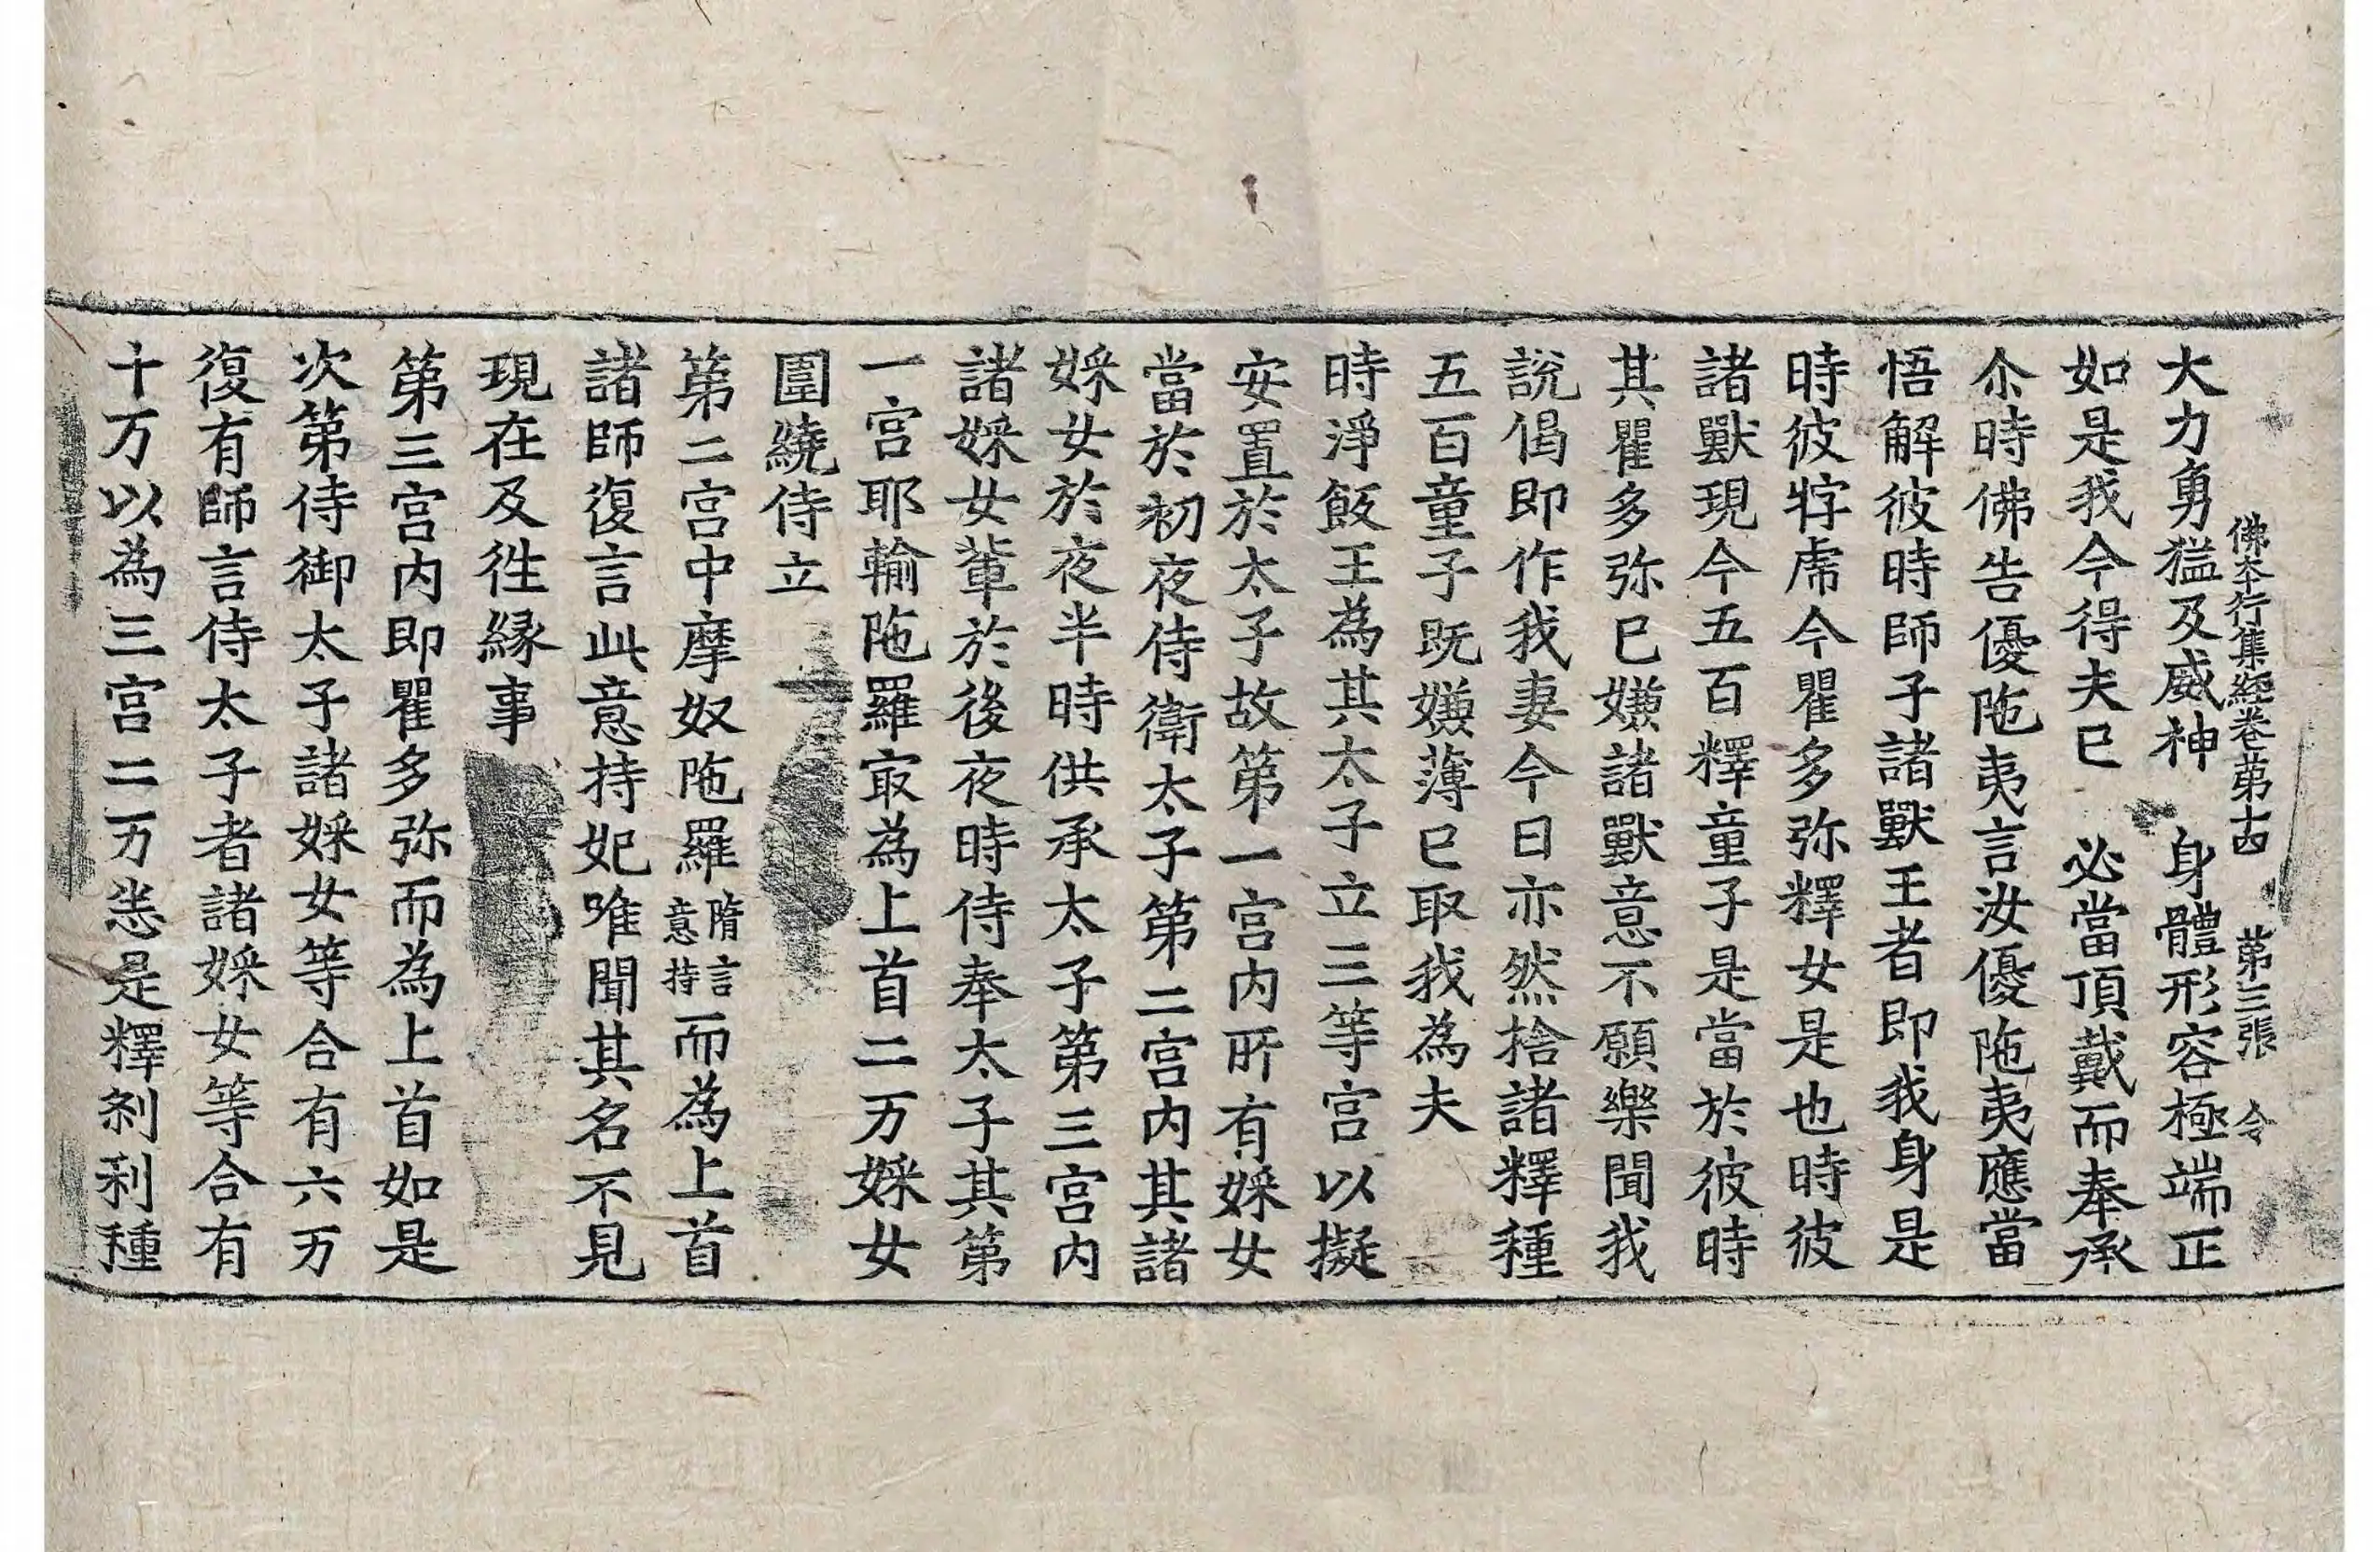 佛本行集經卷第十四　第三張　令
大力勇猛及威神　身體形容極端正
如是我今得夫已　必當頂戴而奉承
尒時佛告優陁夷言汝優陁夷應當
悟解彼時師子諸獸王者即我身是
時彼牸虎今瞿多弥釋女是也時彼
諸獸現今五百釋童子是當於彼時
其瞿多弥已嫌諸獸意不願樂聞我
說偈即作我妻今日亦然捨諸釋種
五百童子既嫌薄已取我為夫
時淨飯王為其太子立三等宮以擬
安置於太子故第一宮内所有婇女
當於初夜侍衛太子第二宮内其諸
婇女於夜半時供承太子第三宮内
諸婇女輩於後夜時侍奉太子其第
一宮耶輸陁羅㝡為上首二万婇女
圍繞侍立
第二宮中摩奴陁羅隋言意持而為上首
諸師復言此意持妃唯聞其名不見
現在及徃緣事
第三宮内即瞿多弥而為上首如是
次第侍御太子諸婇女等合有六万
復有師言侍太子者諸婇女等合有
十万以為三宮二万恙是釋剎利種